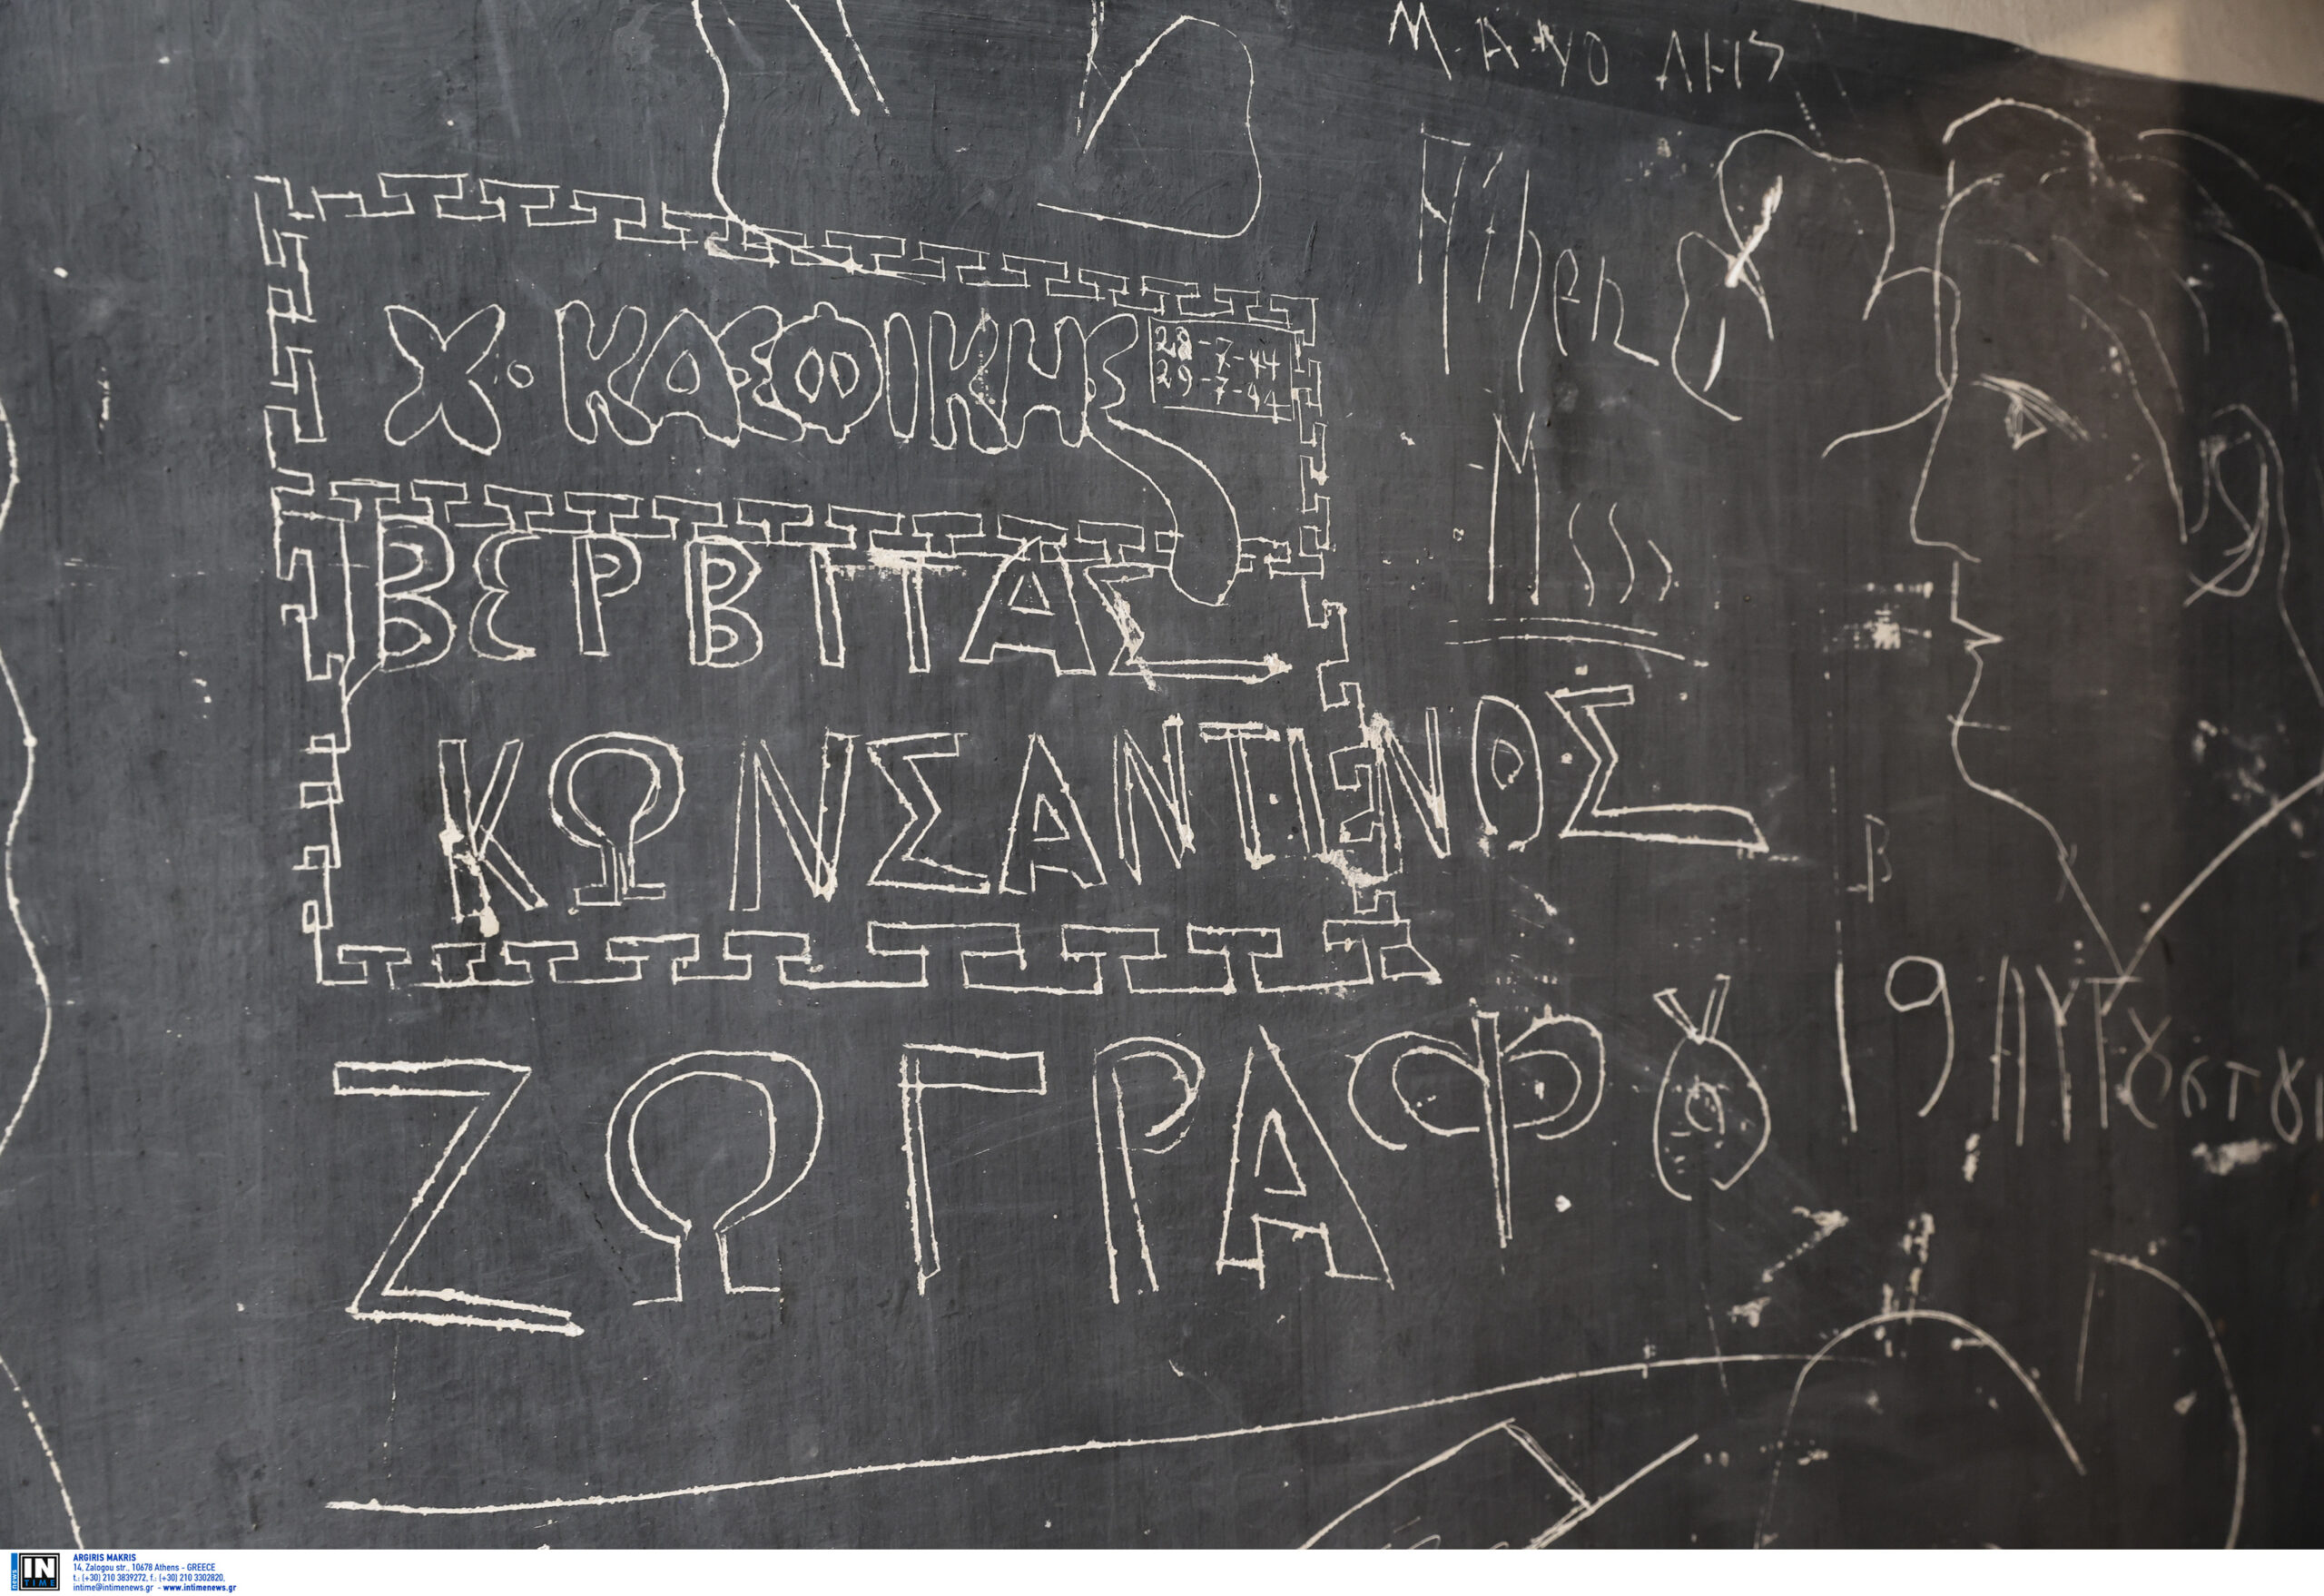 Μ.ΑΨΟΛΗΣ
Athen
Χ. ΚΑΣΦΙΚΗΣ
28-7-44
29-7-44
ΒΕΡΒΙΤΑΣ
ΚΩΝΣΑΝΤΙΝΟΣ
Β
19 ΑΥΓȢСΤȢ
ΖΩΓΡΑΦȢ
IN
TIME
news
ARGIRIS MAKRIS
14, Zalogou str., 10678 Athens - GREECE
t.: (+30) 210 3839272, f.: (+30) 210 3302820,
intime@intimenews.gr - www.intimenews.gr